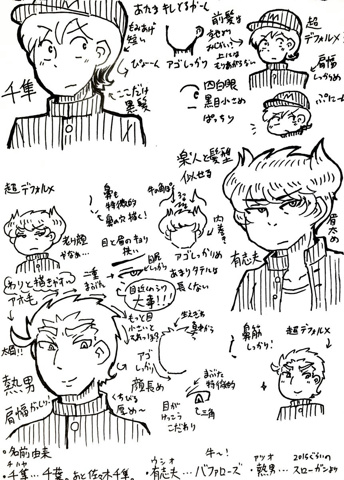 おたまキレてるが〜ん
もみあげ
短い
ぴよーん
ここだけ
黒髪
千隼
アゴしっかり
前髪は
超
デフォルメ
肩幅
しっかめ
四白眼
黒目小さめ
ぱっちり
ぷにー
楽人と髪型
似せる
内巻き
眉太め
有志夫
超デフォルメ
老け顔
かなめ…
鼻も
特徴的
鼻の穴描く!
牛の角
目と眉のキョリ
狭い
二重
まぶた
アゴしっかりめ
あまりタテには
長くない
目近いのコツ
大事!!
わりと描きやすい
アホ毛
太眉!
熱男
肩幅がっしり!
もっと目
小さいと
アゴ
しっかり
顔長め
くちびる
厚め〜
鼻筋
しっかり!
超デフォルメ
まぶた
特徴的
三角
目が
けっこう
こだわり
・名前由来
チハヤ
・千隼…千葉。あと佐々木千隼。
ウシオ
・有志夫…バファローズ
牛〜!
アツオ
・熱男…スローガンより
2015くらいの